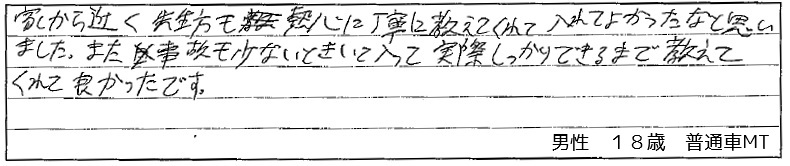 家から近く先生方も熱心に丁寧に教えてくれて入れてよかったなと思い
ました。また事故も少ないときいて入って実際しっかりできるまで教えて
くれて良かったです。
男性 18歳 普通車MT